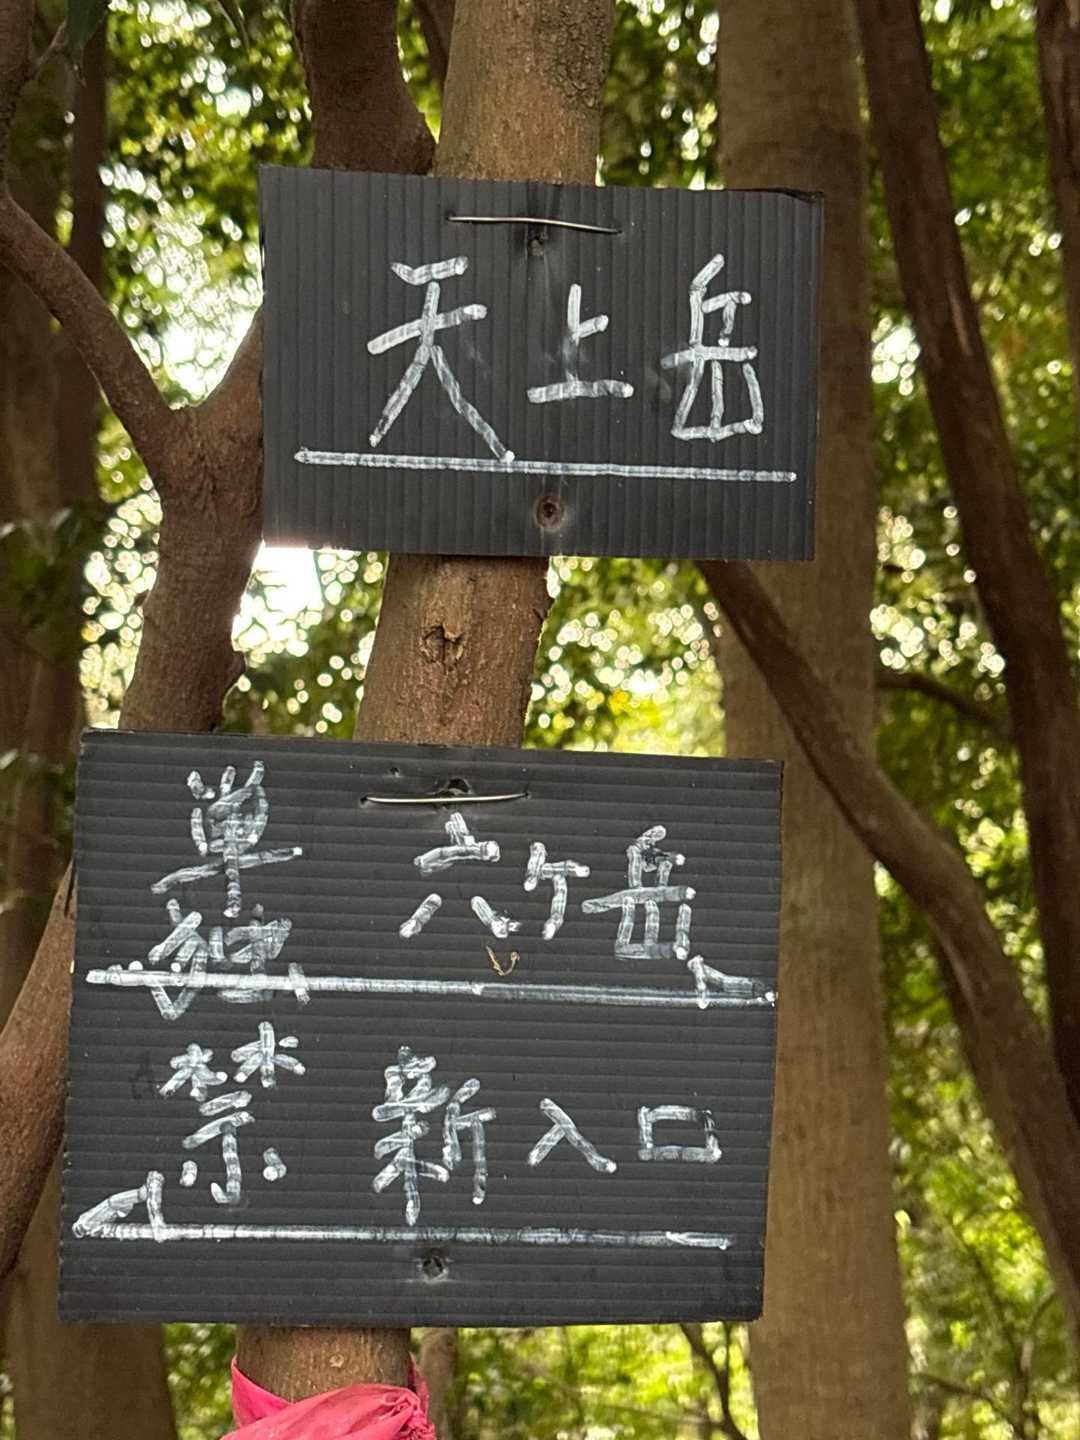 天上岳
六ヶ岳
新入口
単独禁